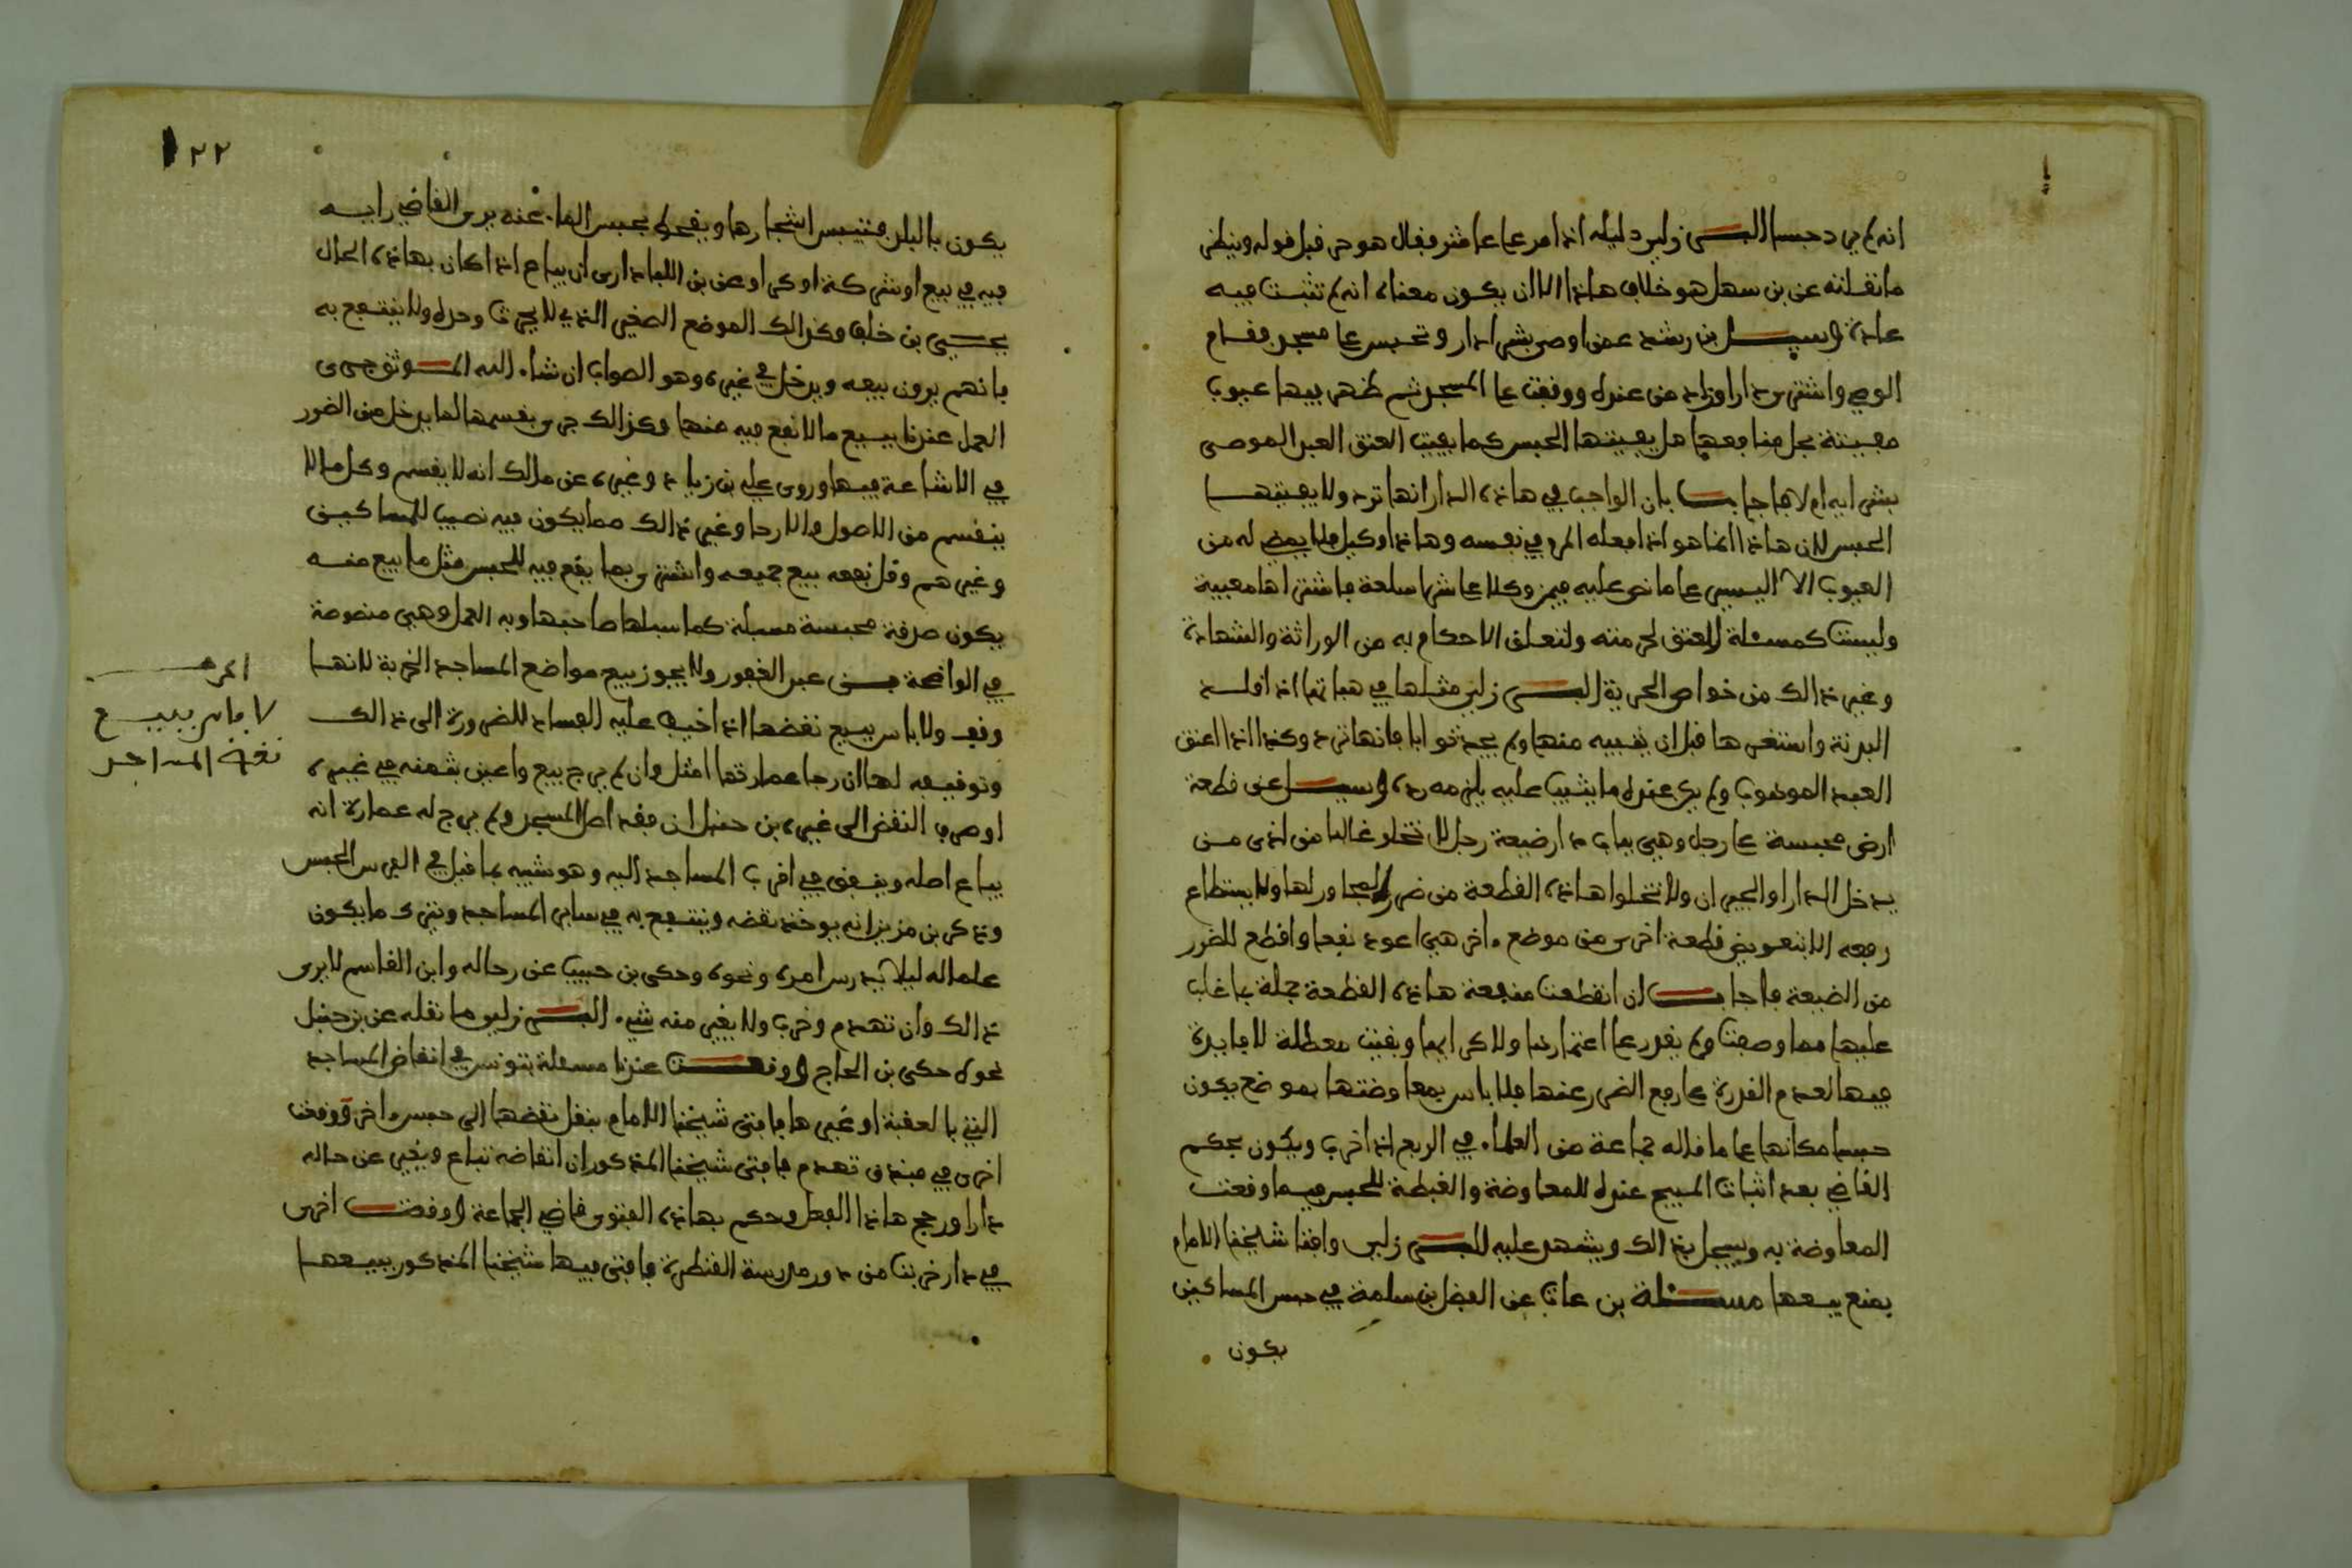 انه لم يرد حبسا البرزلي دليله اذا مر عاما عا مثر فقال هو حر قبل قوله وينظر
ما نقلته عن بن سهل هو خلاف هاذا الا ان يكون معناه انه لم تثبت فيه
عادة وسيل بن رشد عمن اوصى بشرا دار وتحبس على مسجد فقام
الوصي واشترى دارا وزاد من عنده ووقفت على المسجد ثم ظهر بيها عيوب
مفيتة بجل منافعها هل يفيتها الحبس كما يفيت العتق العبد الموصى
بشرايه ام لا فاجاب بان الواجب في هاذه الدار انها ترد ولا يفيتها
الحبس لان هاذا انما هو اذا فعله المرء في نفسه وهاذا وكيل فلا يمضي له من
العيوب الا اليسير على ما نص عليه فيمن وكل على شرا سلعة فاشتراها معيبة
وليست كمسئلة العتق لحرمته ولتعلق الاحكام به من الوراثة والشهادة
وغير ذالك من خواص الحرية البرزلي مثلها في هباتها اذا قلد
البدنة واشعرها قبل ان يغيبه منها ولم يجد ثوابا فانها ترد وكذا اذا اعتق
العبد الموهوب ولم يكن عنده ما يثيب عليه يلزمه رده وسيل عن قطعة
ارض محبسة على رجل وهي بباب دار ضيعة رجل لا تخلو غالبا من اذى من
يدخل الدار او الجيران ولا تخلوا هاذه القطعة من ضرر المجاور لها ولا يستطاع
رفعه الا بتعويض قطعة اخرى من موضع ءاخر هي اعود نفعا واقطع للضرر
من الضيعة فاجاب ان انقطعت منفعة هاذه القطعة جملة بما غلب
عليها مما وصفت ولم يقدر على اعتمارها ولا كرايها وبقيت معطلة لا فايدة
فيها لعدم القدرة على رفع الضرر عنها فلا باس بمعاوضتها بموضع يكون
حبسا مكانها على ما قاله جماعة من العلماء في الربع اذا خرب ويكون بحكم
القاضي بعد اثبات المبيح عنده للمعاوضة والغبطة للحبس فيما وقعت
المعاوضة به ويسجل بذالك ويشهد عليه البرزلي وافتا شيخنا الامام
بمنع بيعها مسئلة بن عات عن الفضل بن سلمة في حبس المساكين
يكون
١٢٢
يكون بالبلد فتيبس اشجارها ويقحط بحبس الماء عنه يرى القاضي رايه
فيه في بيع او شركة او كرا وعن بن اللباد ارى ان يباع اذا كان بهاذه الحال
يحيى بن خلف وكذالك الموضع الصغير الذي لا يحرث وحده ولا ينتفع به
فانهم يرون بيعه ويدخل في غيره وهو الصواب ان شاء الله الموثق جرى
العمل عندنا ببيع ما لا نفع فيه منها وكذالك جرى بقسمها لما يدخل من الضرر
في الاشاعة فيها وروى علي بن زياد وغيره عن مالك انه لا يقسم وكل ما لا
ينقسم من الاصول والارحا وغير ذالك مما يكون فيه نصيب للمساكين
وغيرهم وقل نفعه بيع جميعه واشترى بما يقع فيه للحبس مثل ما بيع منه
يكون صدقة محبسة مسبلة كما سبلها صاحبها وبه العمل وهي منصوصة
في الواضحة عبد الغفور ولا يجوز بيع مواضع المساجد الخربة لانها
وقف ولا باس ببيع نقضها اذا خيف عليه الفساد للضرورة الى ذالك
وتوقيفه لها ان رجا عمارتها امثل وان لم يرج بيع واعين بثمنه في غيره
او صرف النقض الى غيره بن حنبل ان فقد اصل المسجد ولم يرج له عمارة انه
يباع اصله وينفق في اقرب المساجد اليه وهو شبيه بما قيل في الفرس الحبس
وذكر بن مزين انه يوخذ نقضه وينتفع به في ساير المساجد ويترك ما يكون
علما له ليلا يدرس امره ونحوه وحكى بن حبيب عن رجاله وابن القاسم لا يرى
ذالك وان تهدم وخرب ولا يغير منه شيء البرزلي ما نقله عن بن حنبل
نحوه حكى بن الحاج ووقعت عندنا مسئلة بتونس في انقاض المساجد
التي بالعقبة او غيرها فافتى شيخنا الامام بنقل نقضها الى حبس ءاخر ووقعت
اخرى في فندق تهدم فافتى شيخنا المذكور ان انقاضه تباع ويغير عن حاله
دارا ورجح هاذا الفعل وحكم بهاذه الفتوى قاضي الجماعة ووقعت اخرى
في دار خربت من دور مدرسة القنطرة فافتى فيها شيخنا المذكور ببيعها
لا باس ببيع
نقض المساجد